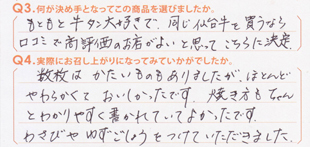 Q3.何が決め手となってこの商品を選びましたか。
もともと牛タン大好きで、同じ仙台牛を買うなら
口コミで高評価のお店がよいと思ってこちらに決定。
Q4.実際にお召し上がりになってみていかがでしたか。
数枚はかたいものもありましたが、ほとんど
やわらかくておいしかったです。焼き方もちゃん
とわかりやすく書かれていてよかったです。
わさびやゆずごしょうをつけていただきました。